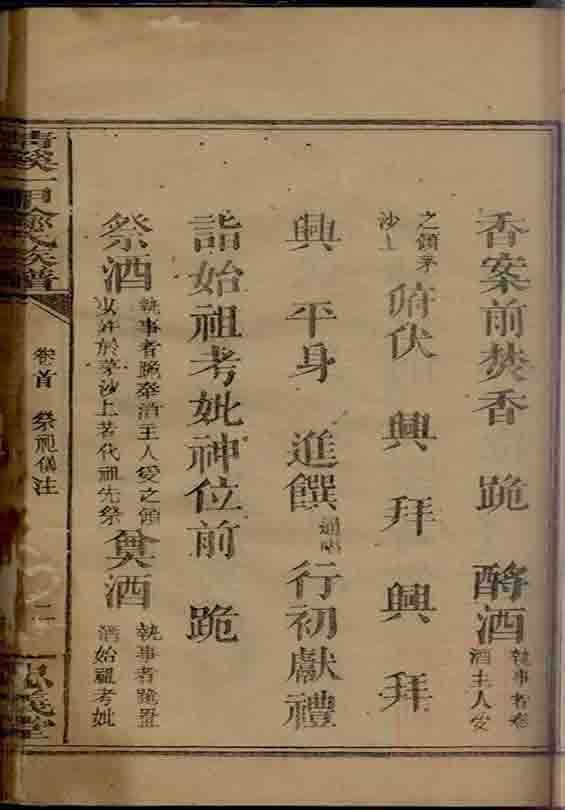 香案前焚香 跪 酹酒 執事者奉酒主人受
之傾茅沙上 俯伏 興 拜 興 拜
興 平身 進饌 通唱 行初獻禮
詣始祖考妣神位前 跪
祭酒 執事者跪奉酒主人受之傾少許於茅沙上若代祖先祭 奠酒 執事者跪置酒始祖考妣
氏族譜
卷首 祭祀儀注
二
忠義堂